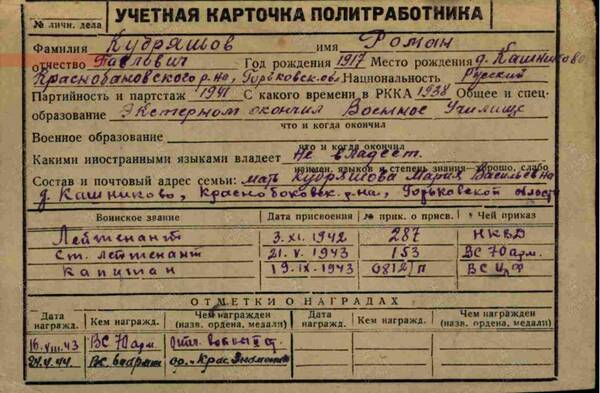 УЧЕТНАЯ КАРТОЧКА ПОЛИТРАБОТНИКА
№ личн. дела
Фамилия Кудряшов имя Роман
отчество Павлович Год рождения 1917 Место рождения д. Кашниково
Краснобаковского р-на, Горьковск. об. Национальность Русский
Партийность и партстаж 1941 С какого времени в РККА 1938 Общее и спец-
образование Экстерном окончил Военное Училище
что и когда окончил
Военное образование
что и когда окончил
Какими иностранными языками владеет Не владеет.
наимен. языков и степень знания—хорошо, слабо
Состав и почтовый адрес семьи: мать Кудряшова Мария Васильевна
д. Кашниково, Краснобаковск. р-на, Горьковской области
Воинское звание Дата присвоения № прик. о присв. Чей приказ
Лейтенант 3.XI.1942 287 НКВД
Ст. лейтенант 21.V.1943 153 ВС 70 арм.
Капитан 19.IX-1943 0812/п ВС ЦФ
ОТМЕТКИ О НАГРАДАХ
Дата награжд. Кем награжд. Чем награжден (назв. ордена, медали) Дата награжд. Кем награжд. Чем награжден (назв. ордена, медали)
16.VIII.43 ВС 70 арм. Отеч. войны II ст.
ВС ор. „Крас. Знамени"